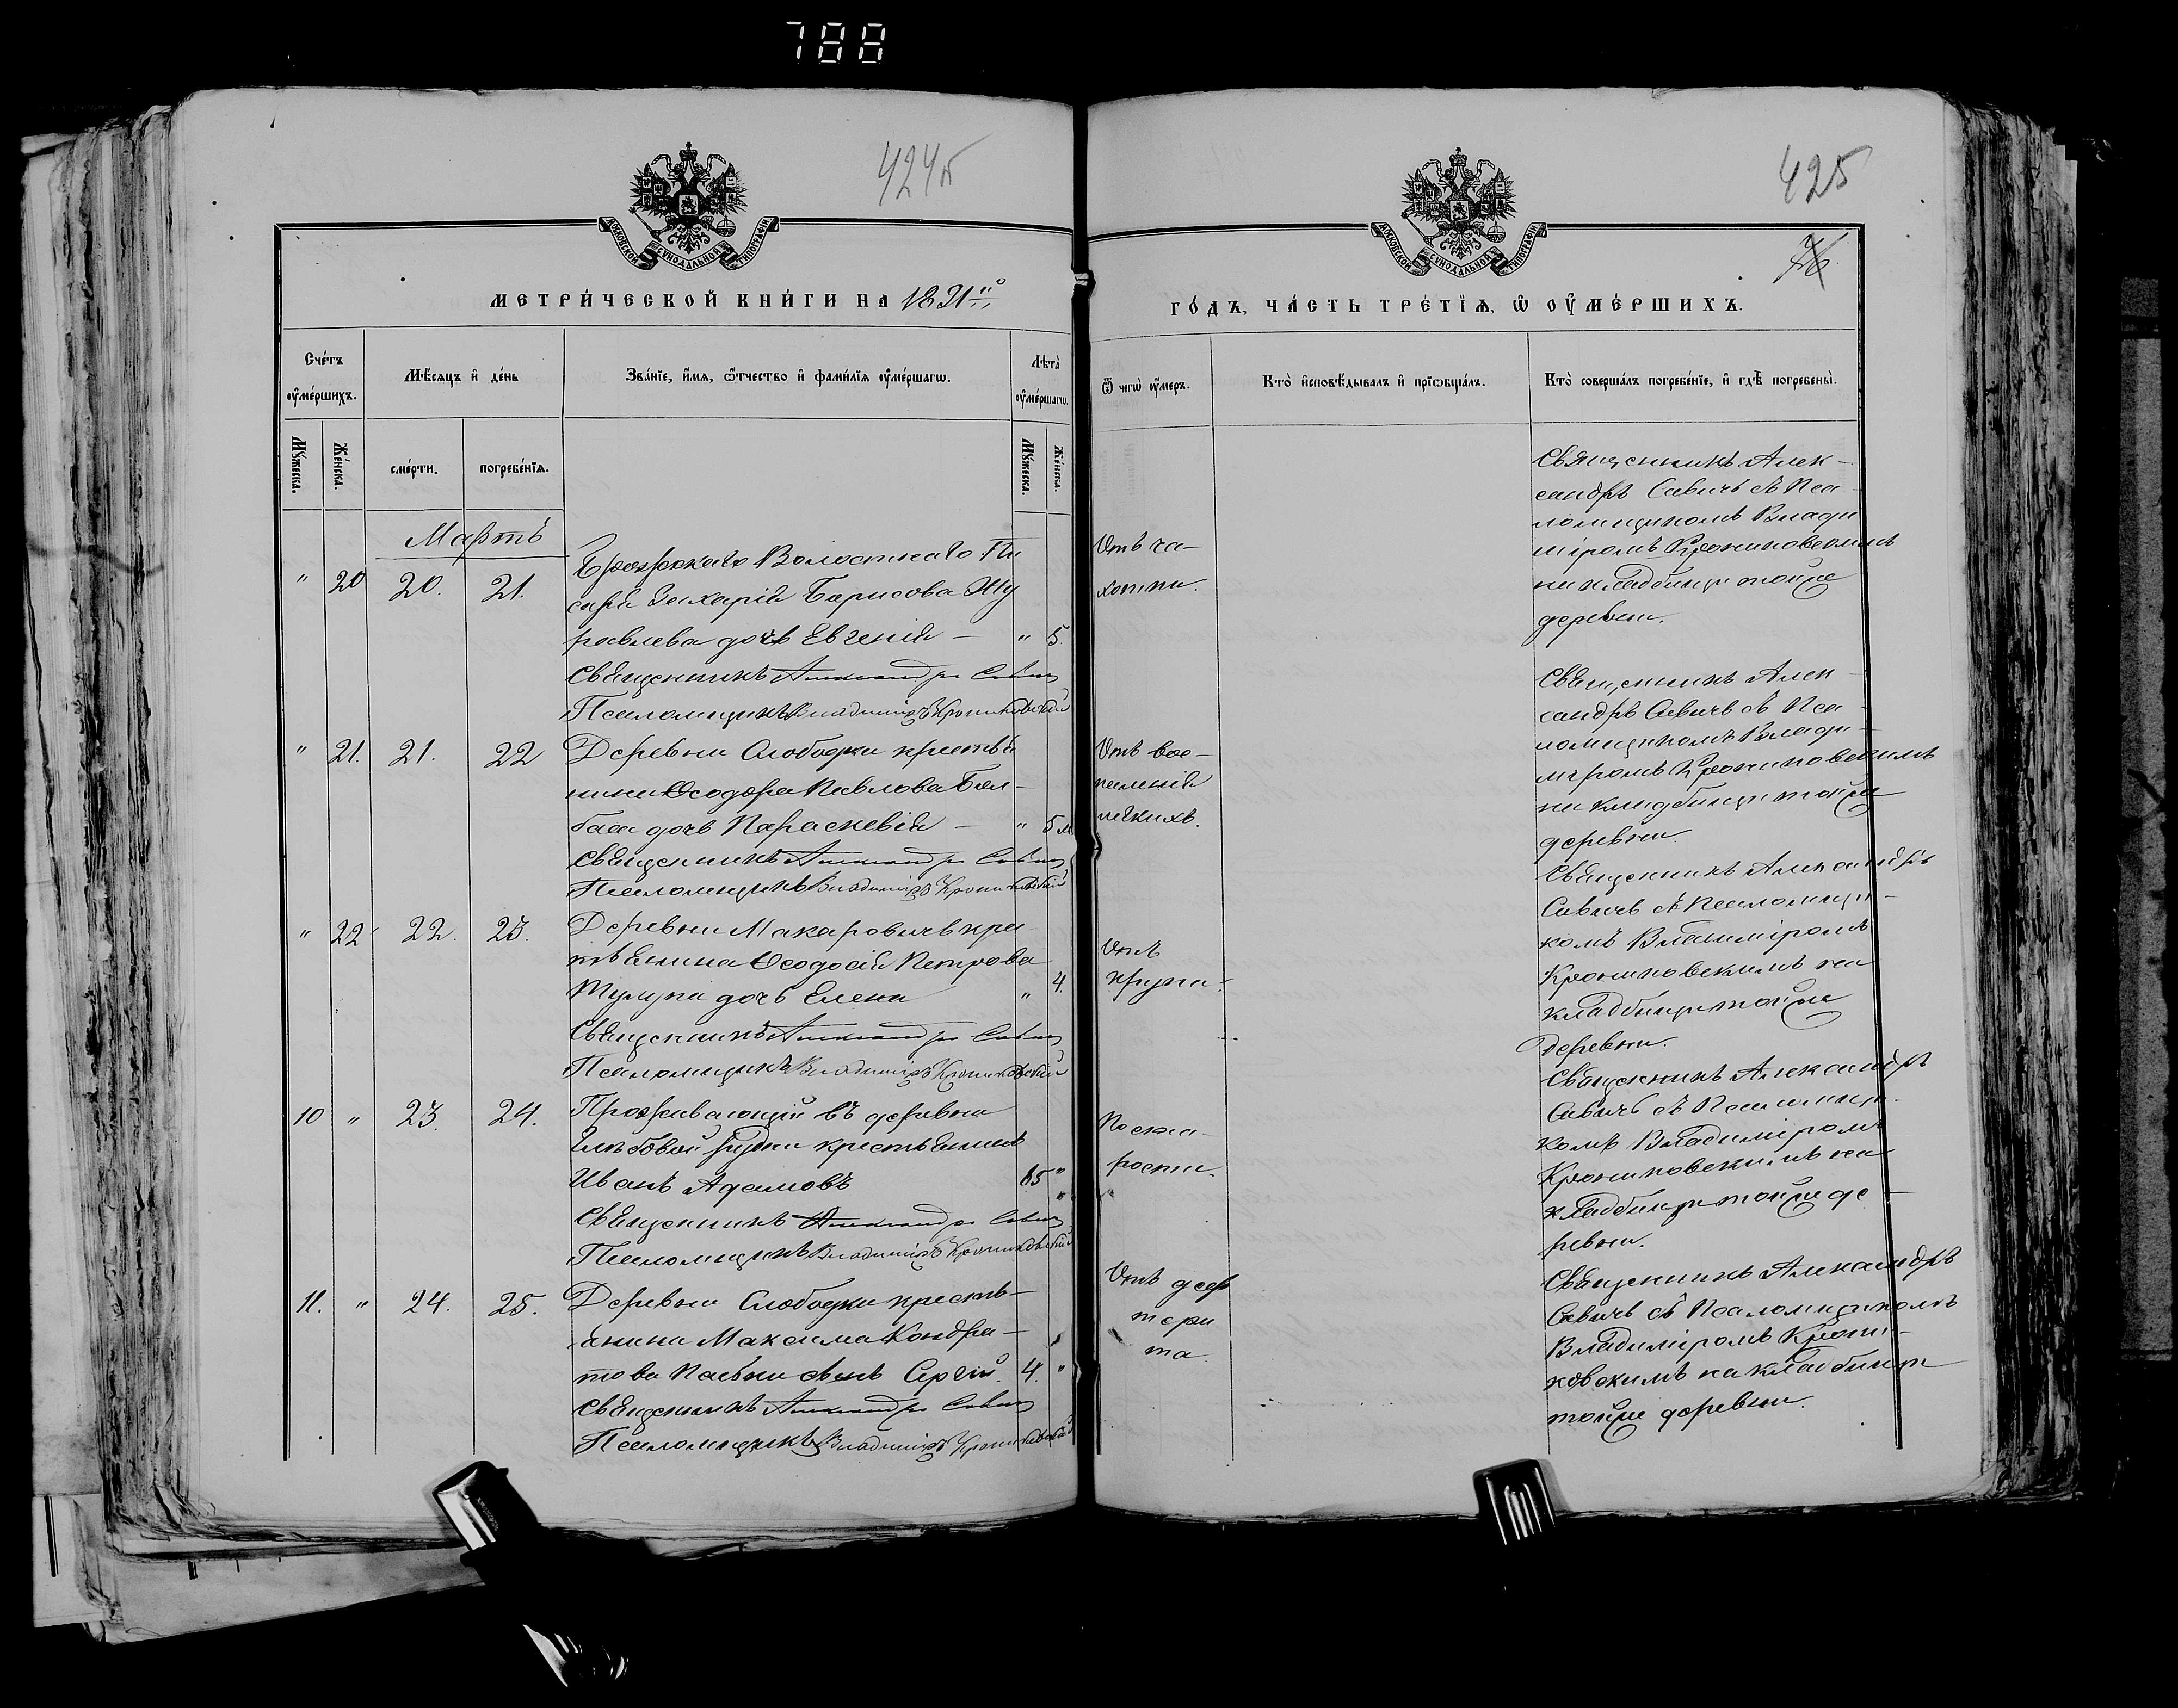 788
424б
МОСКОВСКОЙ СѴНОДАЛЬНОЙ ТИПОГРАФІИ
МЕТРИ́ЧЕСКОЙ КНИ́ГИ НА 1891
Сче́тъ ᲂу҆ме́ршихъ.
Мѣ́сяцъ и҆ де́нь
Зва́нїе, и҆́мѧ, ѻ҆́тчество и҆ фами́лїѧ ᲂу҆ме́ршагѡ.
Лѣ́та ᲂу҆ме́ршагѡ.
Мꙋ́жеска.
Же́нска.
сме́рти.
погребе́нїѧ.
Мꙋ́жеска.
Же́нска.
Мартъ
" 20 20. 21.
Волостнаго Пи
саря Захарія Борисова Жу
равлева дочь Евгенія — " 5.
Священникъ Александръ Савичъ
Псаломщикъ Владиміръ Крониковскій
" 21. 21. 22 Деревни Слободки крестья
нина Ѳеодора Павлова
дочь Параскевія — " 5 м
Священникъ Александръ Савичъ
Псаломщикъ Владиміръ Крониковскій
" 22 22. 23. Деревни Макаровичъ крес
тьянина Ѳеодосія Петрова
дочь Елена " 4.
Священникъ Александръ Савичъ
Псаломщикъ Владиміръ Крониковскій
10 " 23. 24. Проживающій въ деревни
Глѣбовой Рудни крестьянинъ
Иванъ Адамовъ 85 "
Священникъ Александръ Савичъ
Псаломщикъ Владиміръ Крониковскій
11. " 24. 25. Деревни Слободки кресть-
янина Максима Кондра-
това сынъ Сергій. 4. "
Священникъ Александръ Савичъ
Псаломщикъ Владиміръ Крониковскій
425
МОСКОВСКОЙ СѴНОДАЛЬНОЙ ТИПОГРАФІИ
ГО́ДЪ, ЧА́СТЬ ТРЕ́ТЇѦ, Ѡ҆ ОУ҆МЕ́РШИХЪ.
Ѿ чегѡ̀ ᲂу҆́меръ.
Кто̀ и҆сповѣ́дывалъ и҆ прїѡбща́лъ.
Кто̀ соверша́лъ погребе́нїе, и҆ гдѣ̀ погребены̀.
Отъ ча-
хотки.
Священникъ Алек-
сандръ Савичъ съ Пса-
ломщикомъ Влади
міромъ Крониковскимъ
на кладбищѣ тойже
деревни.
Отъ вос-
паленія
легкихъ.
Священникъ Алек-
сандръ Савичъ съ Пса-
ломщикомъ Влади-
міромъ Крониковскимъ
на кладбищѣ тойже
деревни.
Отъ
крупа.
Священникъ Александръ
Савичъ съ Псаломщи-
комъ Владиміромъ
Крониковскимъ на
кладбищѣ тойже
деревни.
По ста-
рости.
Священникъ Александръ
Савичъ съ Псаломщи-
комъ Владиміромъ
Крониковскимъ на
кладбищѣ тойже де-
ревни.
Отъ диф
тери
та.
Священникъ Александръ
Савичъ съ Псаломщикомъ
Владиміромъ Крони-
ковскимъ на кладбищѣ
тойже деревни.